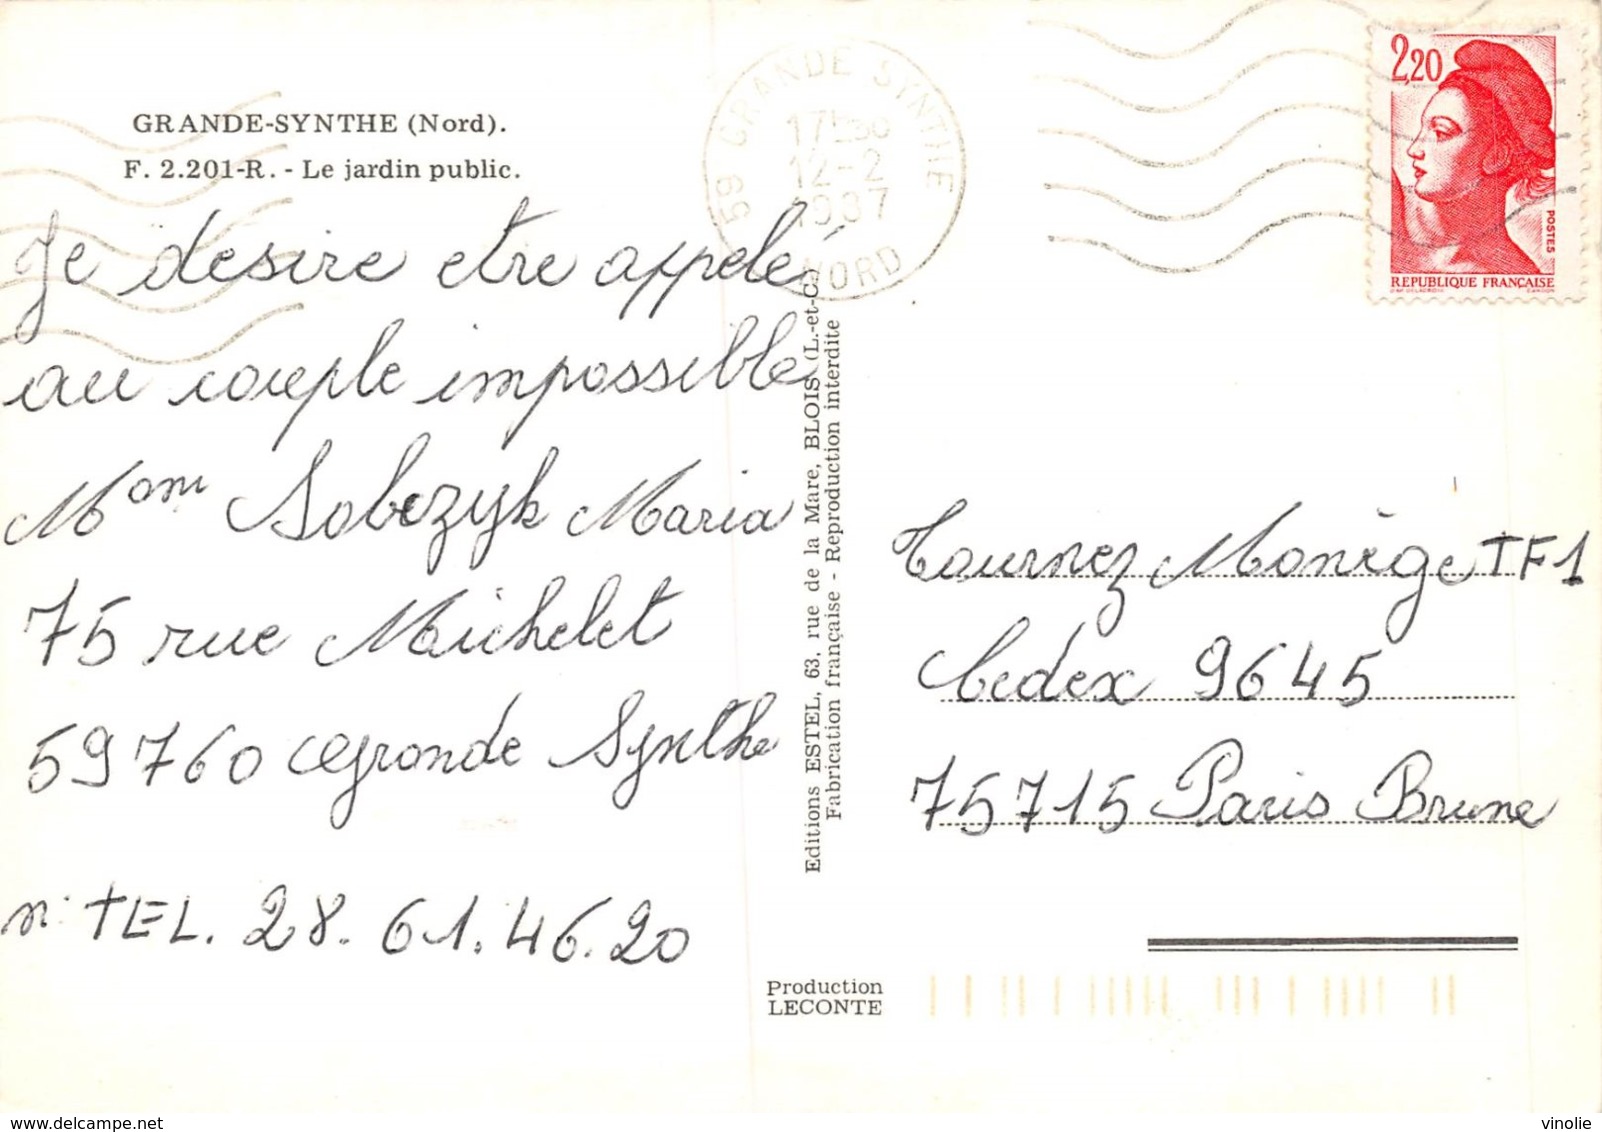 GRANDE-SYNTHE (Nord).
F. 2.201-R. - Le jardin public.
Je desire etre appelé
au couple impossible
Mme Sobczyk Maria
75 rue Michelet
59760 Grande Synthe
n° TEL. 28.61.46.20
59 GRANDE SYNTHE
17H30
12-2
1987
NORD
2,20
POSTES
REPUBLIQUE FRANÇAISE
Editions ESTEL, 63, rue de la Mare, BLOIS (L.-et-C.)
Fabrication française - Reproduction interdite
Tournez Manège TF1
Cedex 9645
75715 Paris Brune
Production
LECONTE
vinolie